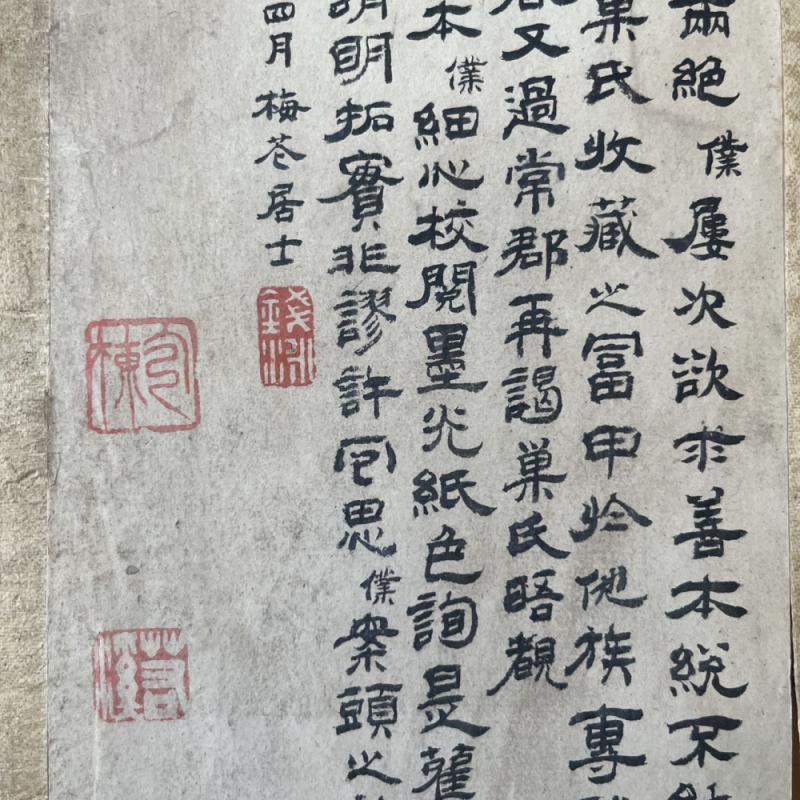 兩絕僕屢次欲求善本絕不能
巢氏收藏之富甲於他族專
又過常郡再謁巢氏晤覩
本僕細心校閱墨光紙色詢是舊
明拓實非謬許回思僕案頭之
四月梅苍居士
錢